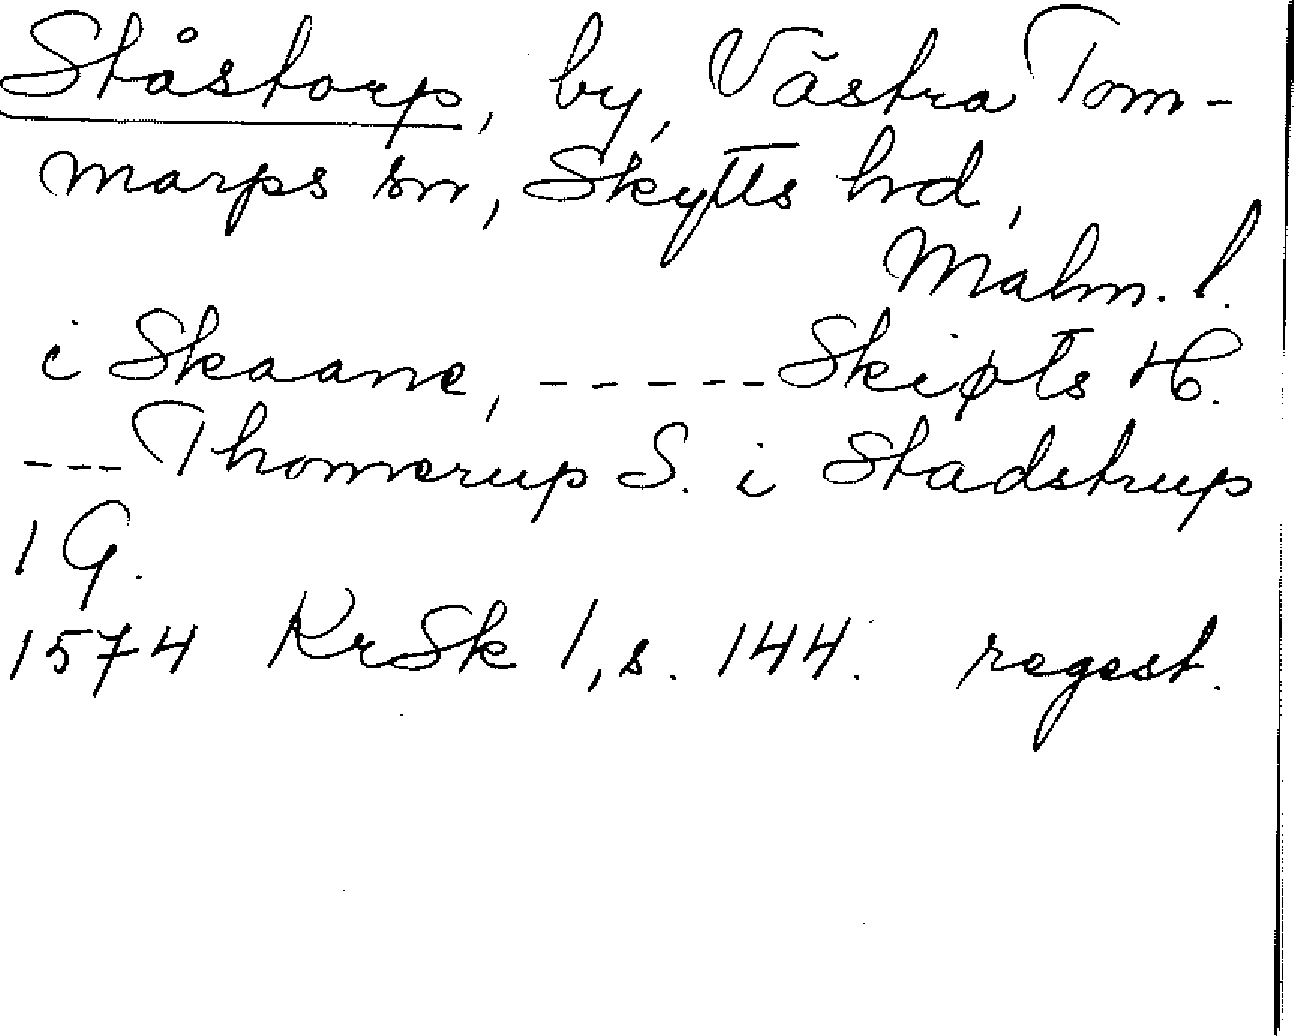 Ståstorp, by, Västra Tom-
marps sn, Skytts hd,
Malm. l.
i Skaane, ----- Skipts H.
--- Thomerup S. i Stadstrup
1 G.
1574 KrSk 1, s. 144. regest.